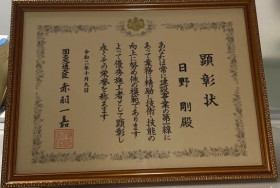 顕彰状
日野 剛殿
あなたは常に建設事業の第一線に
あって業務に精励し技術・技能の
向上に努め他の模範であります
よって優秀施工者として顕彰し
永くその栄誉を称えます
令和二年十月九日
国土交通大臣 赤羽一嘉